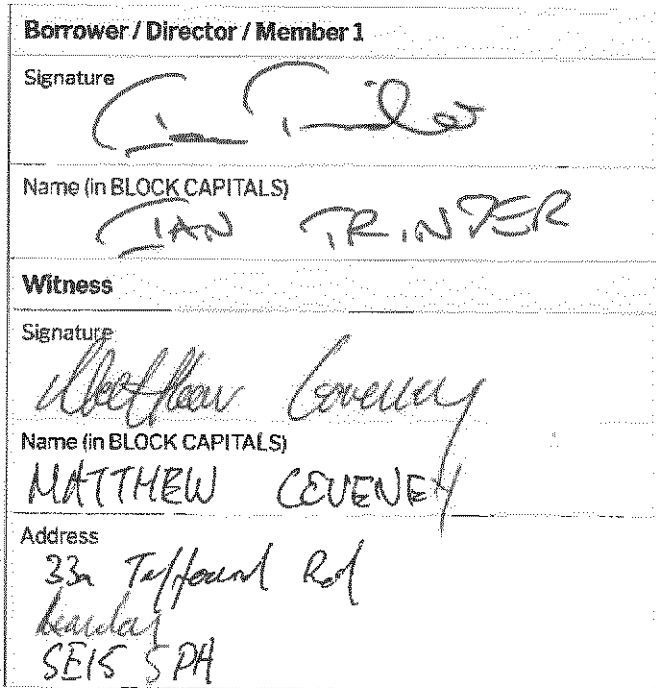 Borrower / Director / Member 1
Signature
Name (in BLOCK CAPITALS)
IAN TRINDER
Witness
Signature
Matthew Ceveney
Name (in BLOCK CAPITALS)
MATTHEW CEVENEY
Address
33a Rd
London
SE15 5PH